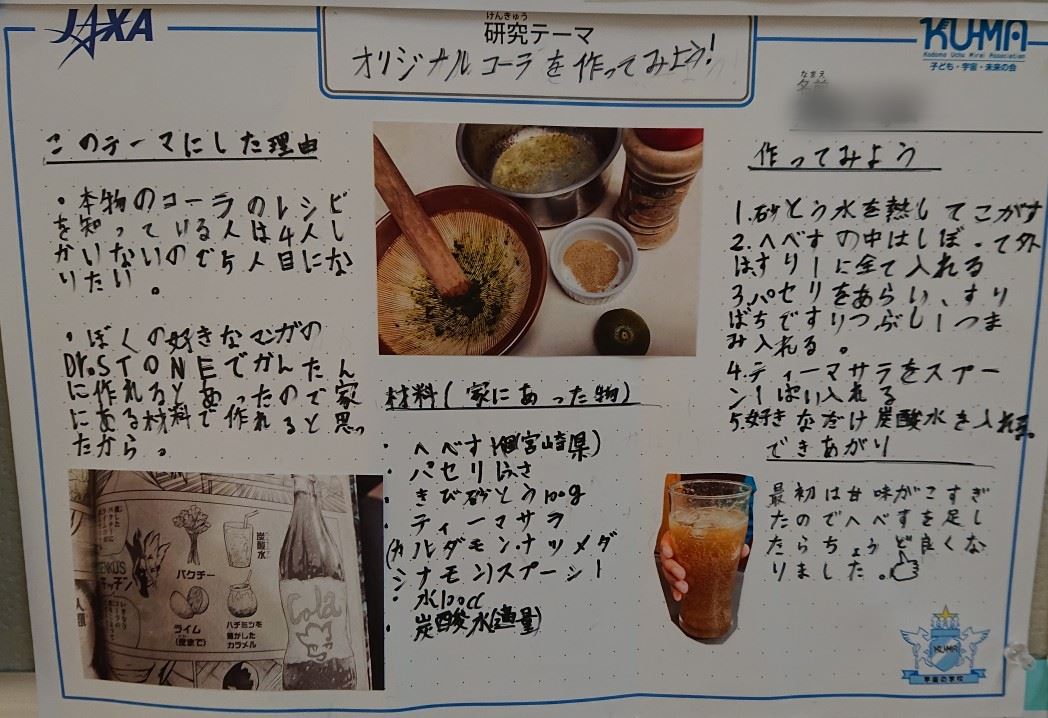 JAXA
けんきゅう
研究テーマ
オリジナルコーラを作ってみよう!
KU-MA
Kodomo Uchu Mirai Association
子ども・宇宙・未来の会
なまえ
名前
このテーマにした理由
・本物のコーラのレシピ
を知っている人は4人し
かいないので5人目にな
りたい。
・ぼくの好きなマンガの
Dr.STONEでかんたん
に作れるとあったので家
にある材料で作れると思っ
たから。
炭酸水
パクチー
ライム
(皮まで)
ハチミツを
焦がした
カラメル
Cola
材料(家にあった物)
・へべす1個(宮崎県)
・パセリ1ふさ
・きび砂とう100g
・ティーマサラ
(カルダモン・ナツメグ
シナモン)スプーン1
・水100cc
・炭酸水(適量)
作ってみよう
1.砂とう水を熱してこがす
2.へべすの中はしぼって外
はすり1に全て入れる
3.パセリをあらい、すり
ばちですりつぶし1つま
み入れる。
4.ティーマサラをスプー
ン1ぱい入れる
5.好きなだけ炭酸水を入れる。
できあがり
最初は甘味がこすぎ
たのでへべすを足し
たらちょうど良くな
りました。
KU-MA
宇宙の学校